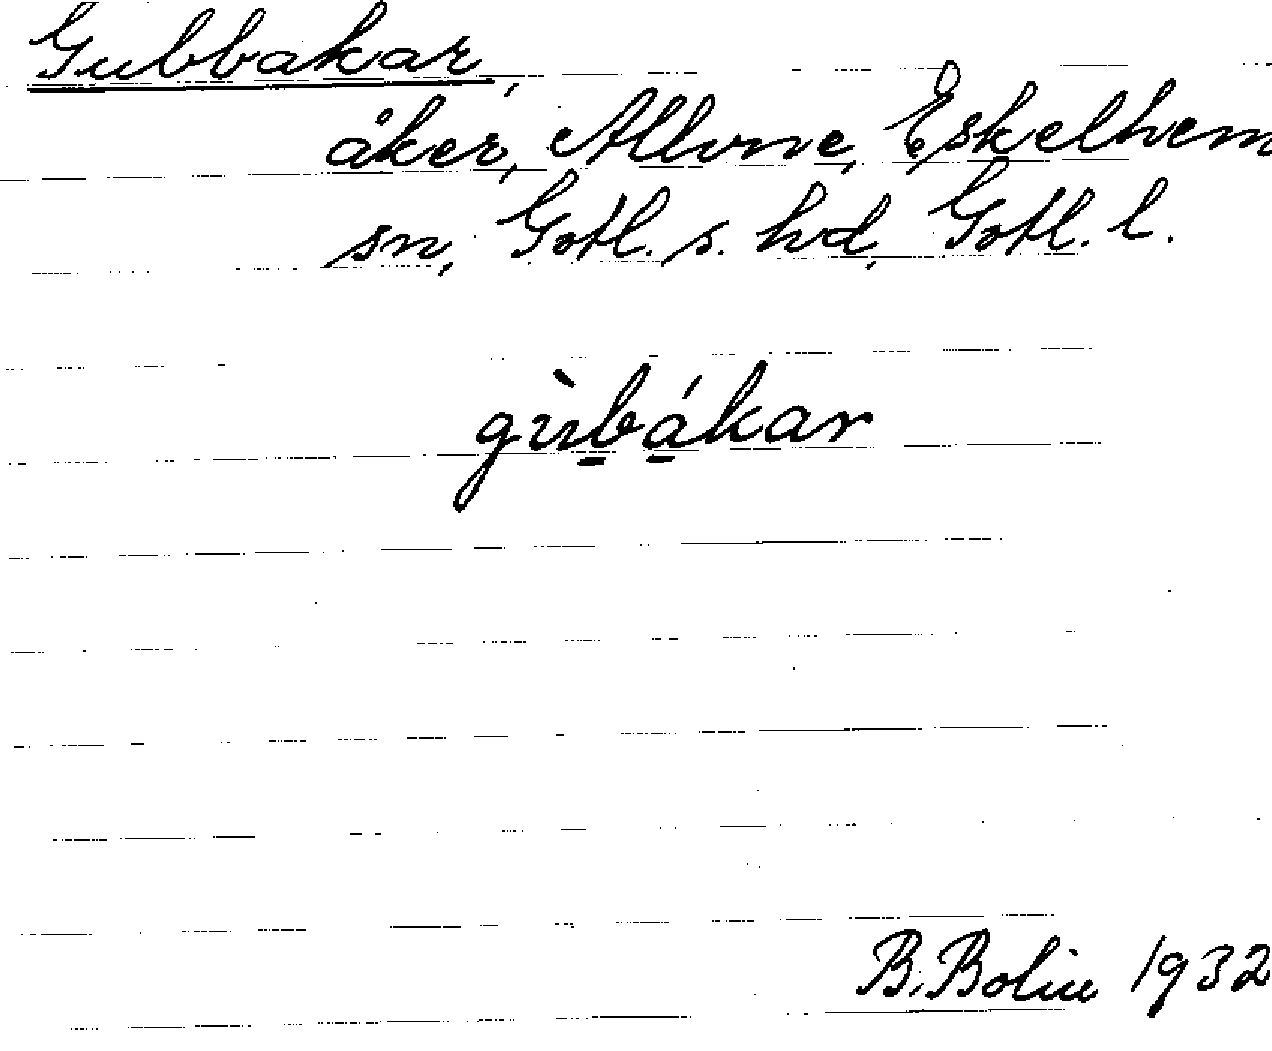 Gubbakar,
åker, Allvne, Eskelhem
sn, Gotl. s. hd, Gotl. l.
gùb̲á̲kar
B. Bolin 1932